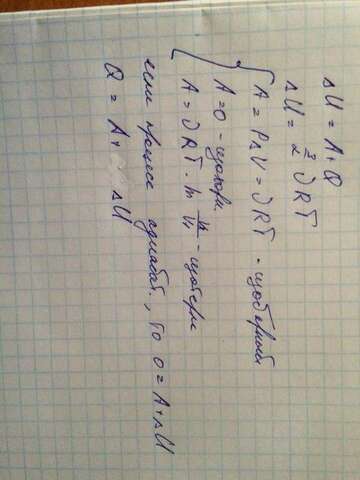 ΔU = A + Q
ΔU = 3/2 νRT
A = PΔV = νRT - изобарный
A = 0 - изохорн
A = νRT · ln V2/V1 - изотерм
если процесс адиабат., то 0 = A + ΔU
Q = A + ΔU